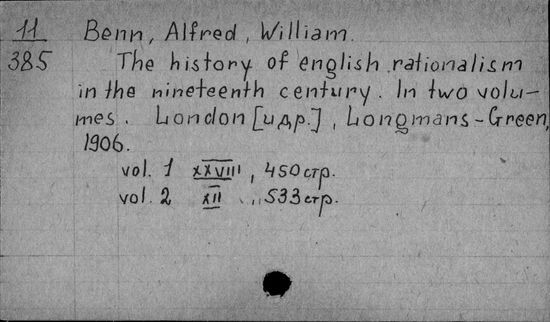 11 Benn, Alfred, William.
385 The history of english rationalism
in the nineteenth century. In two volu-
mes. London [и др.], Longmans-Green,
1906.
vol. 1 XXVIII, 450 стр.
vol. 2 XII, 533 стр.